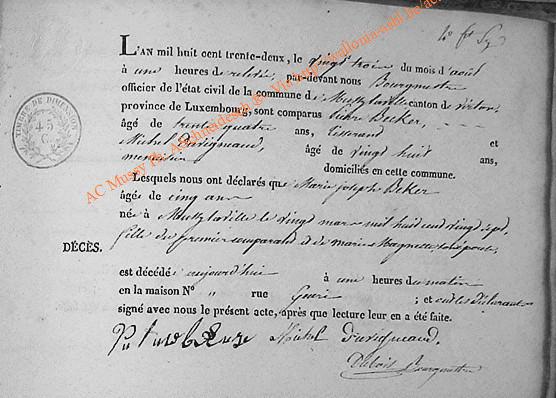 L'AN mil huit cent trente-deux, le vingt trois du mois d'aout
à une heures de relevée, par-devant nous Bourgmestre
officier de l'état civil de la commune de Mussy la ville canton de Virton,
province de Luxembourg, sont comparus Pierre Becker,
âgé de trente quatre ans, tisserand et
Michel Duvigneaud, âgé de vingt huit ans,
menuisier domiciliés en cette commune.
Lesquels nous ont déclarés que Marie Joseph Beker
âgée de cinq ans
née à Mussy la ville le vingt mars mil huit cent vingt sept,
fille du premier comparant et de marie Magnette, son épouse,
DÉCÈS.
est décédée aujourd'hui à une heures du matin
en la maison N° " rue ; et ont les déclarants
signé avec nous le présent acte, après que lecture leur en a été faite.
Michel Duvigneaud.
Dubois Bourgmestre
TIMBRE DE DIMENSION
45
C.
AC Mussy